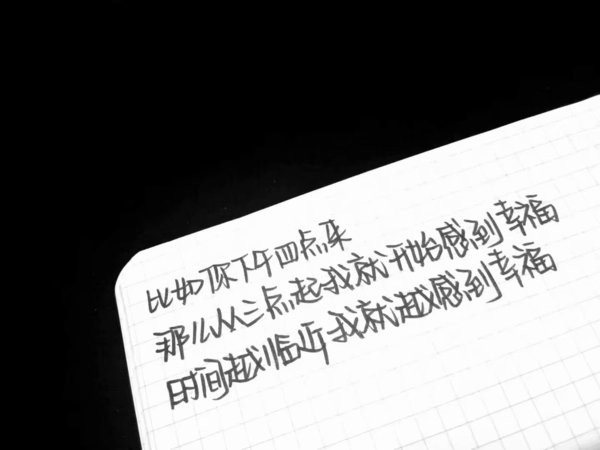 比如你下午四点来
那么从三点起我就开始感到幸福
时间越临近我就越感到幸福